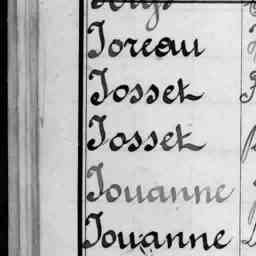 Joreau
Josset
Josset
Jouanne
Jouanne